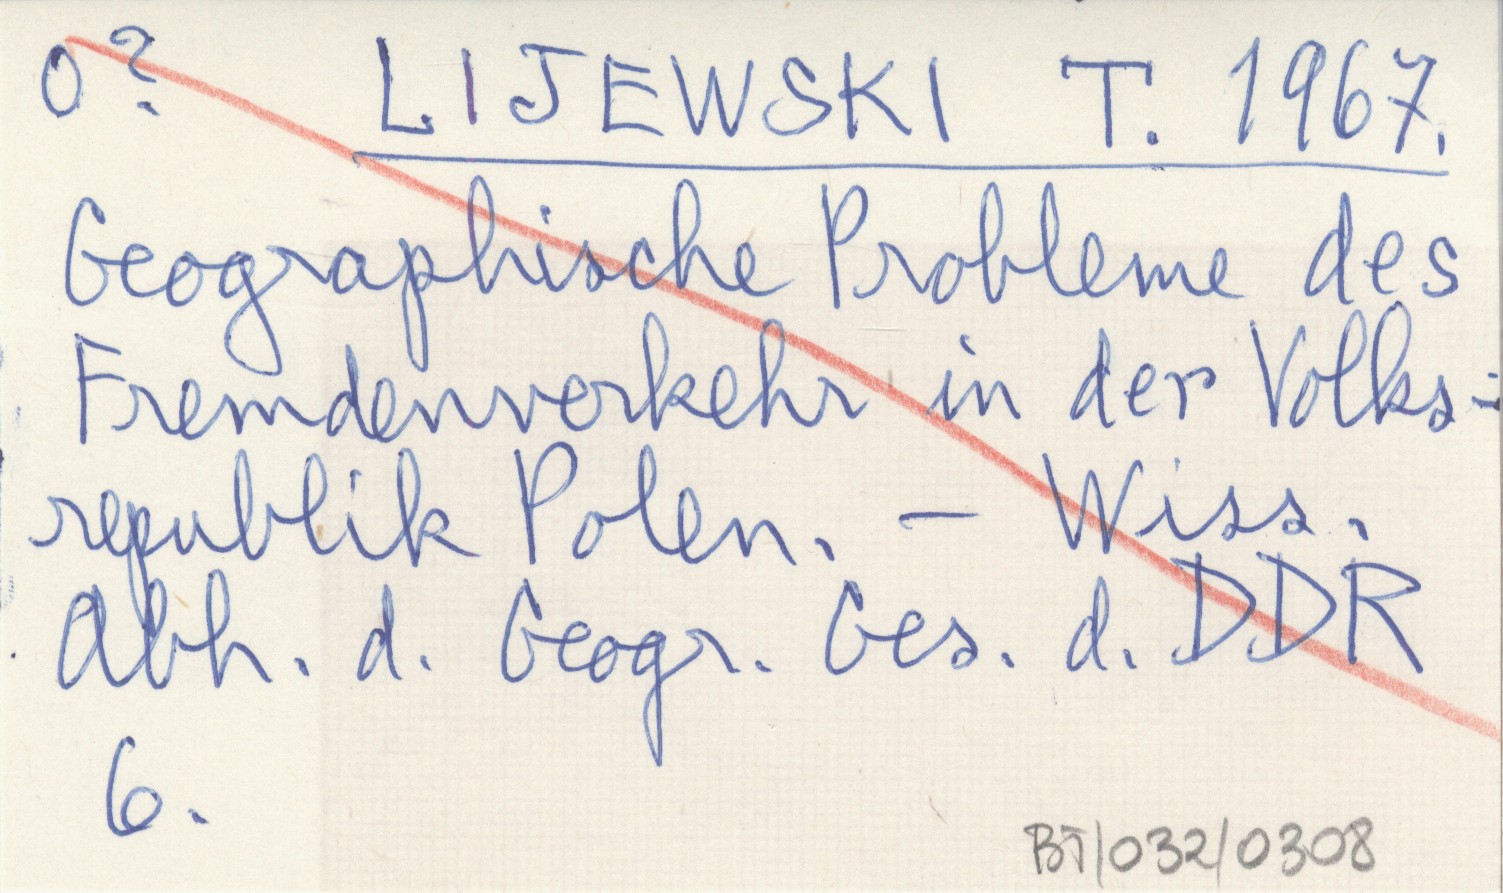 0? LIJEWSKI T. 1967.
Geographische Probleme des
Fremdenverkehr in der Volks-
republik Polen. - Wiss.
Abh. d. Geogr. Ges. d. DDR
6.
BJ/032/0308